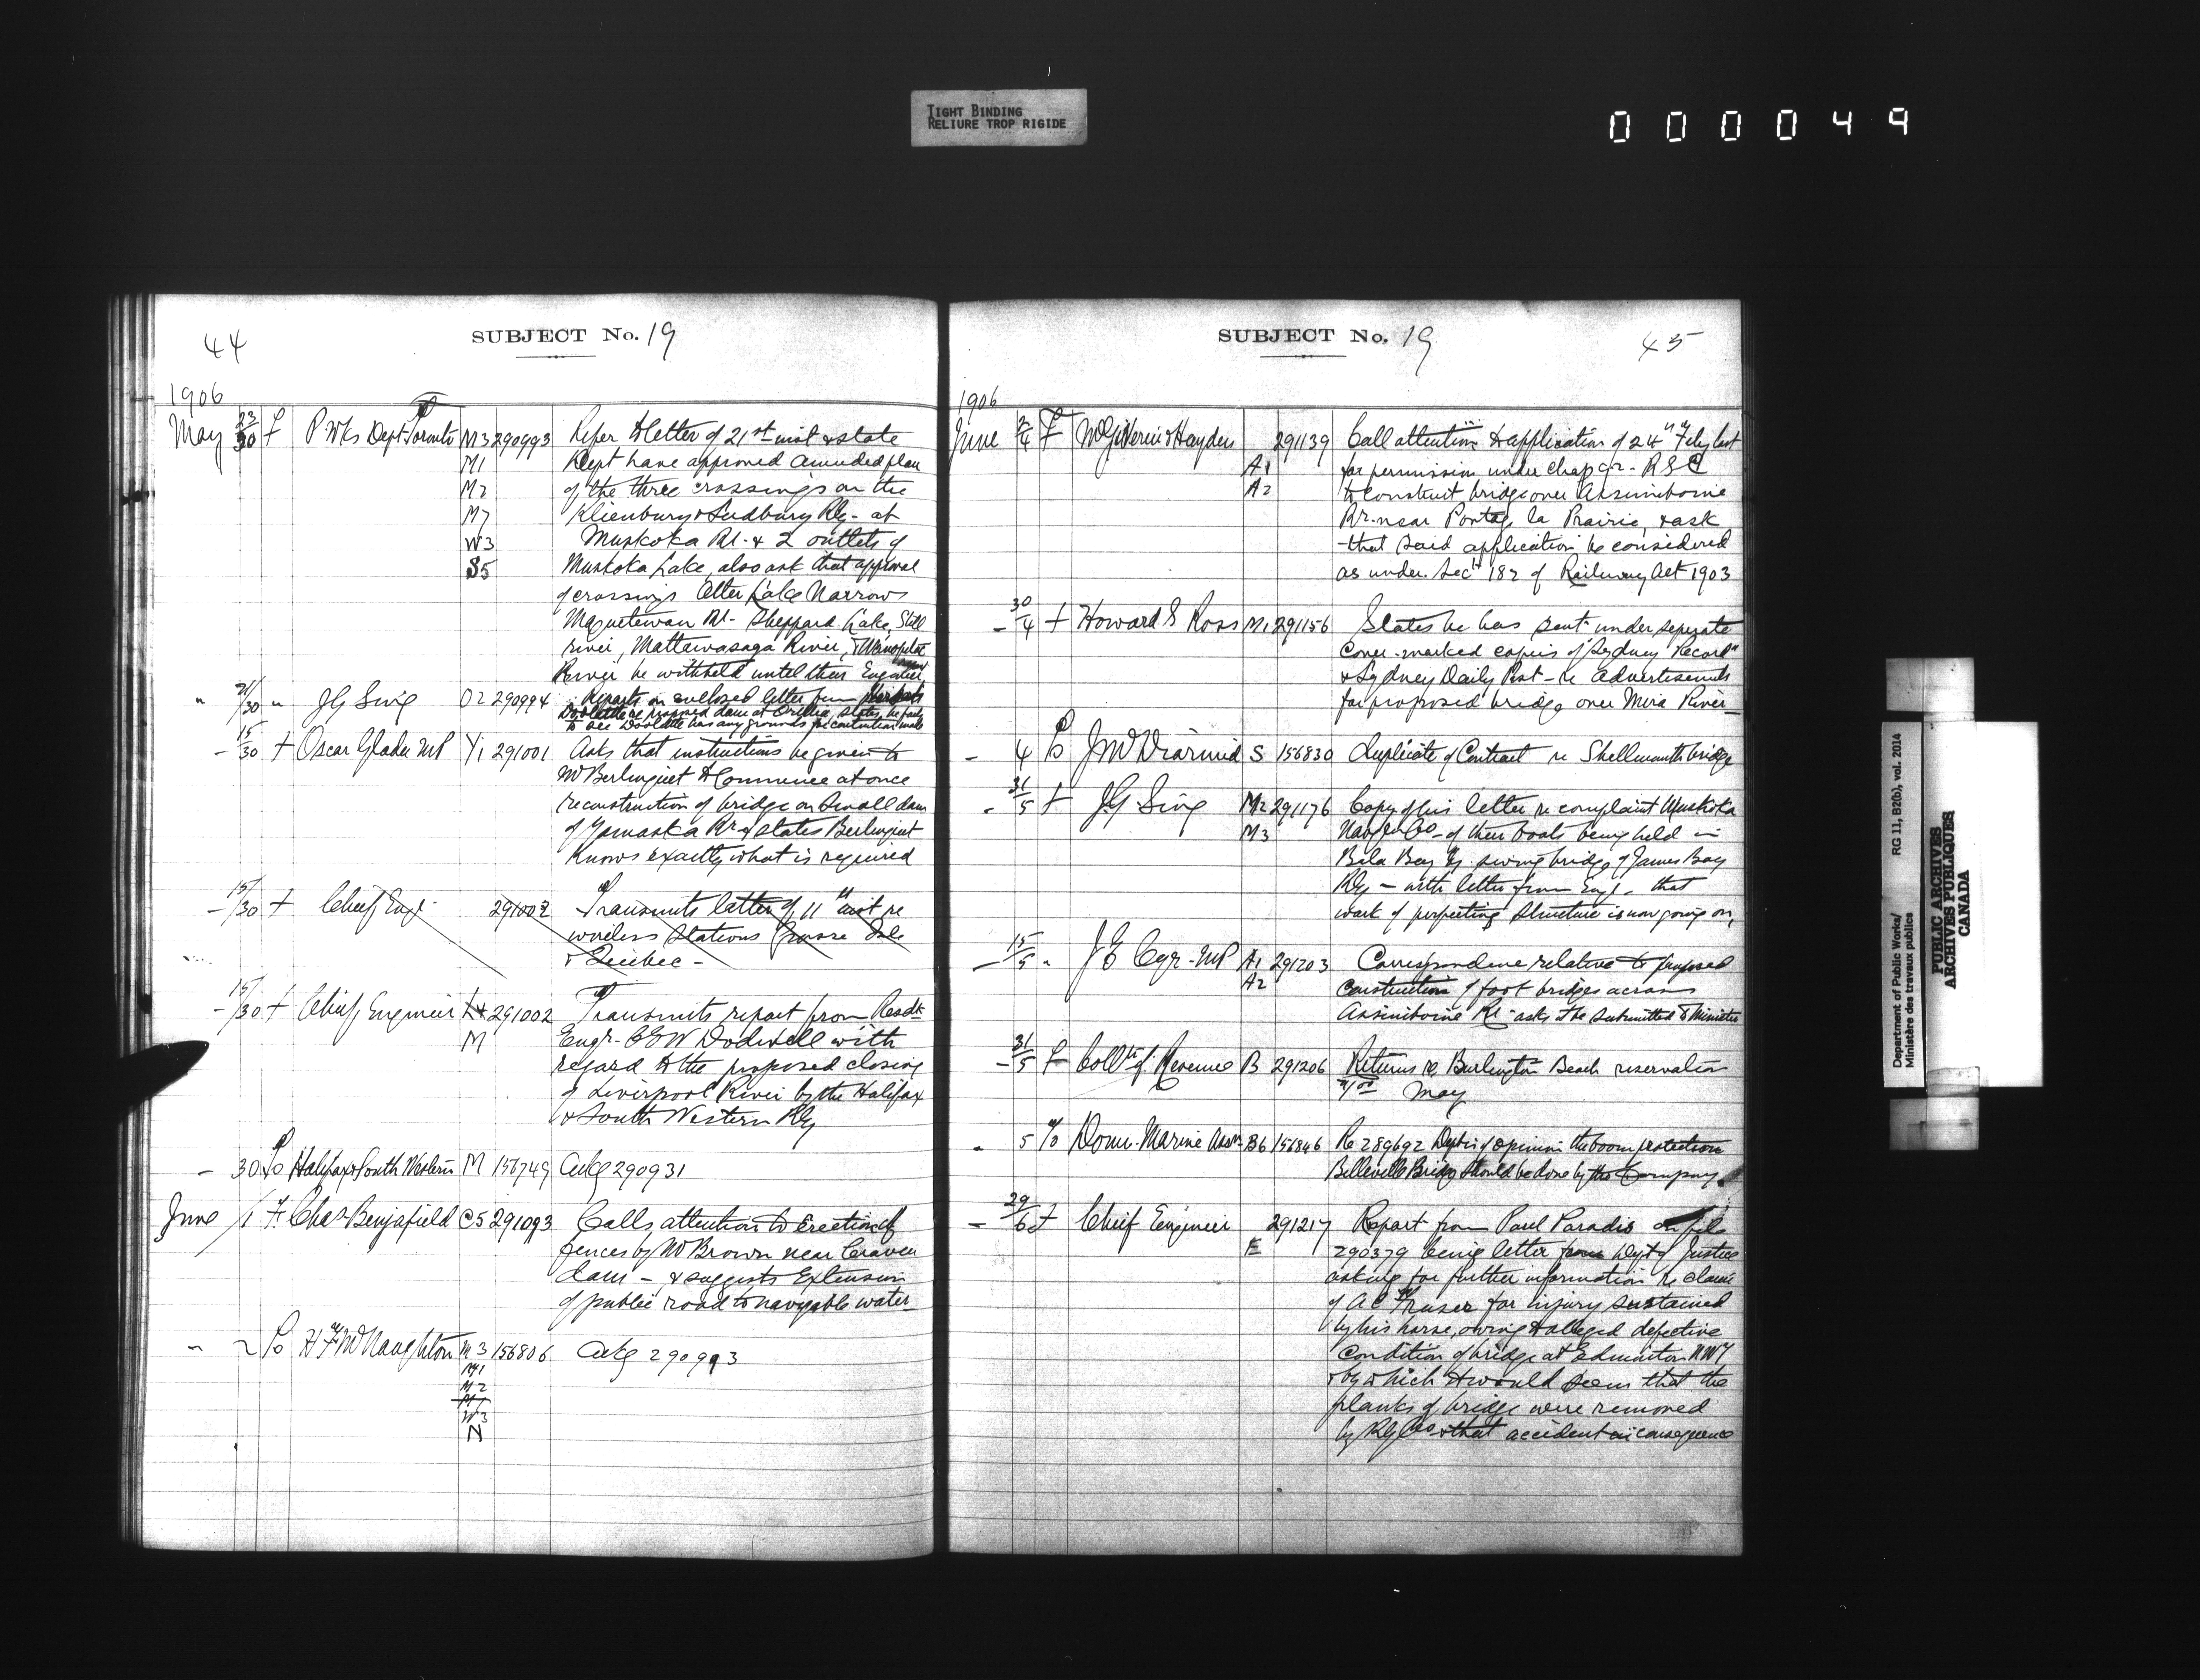 TIGHT BINDING
RELIURE TROP RIGIDE
0 0 0 0 4 9
44
SUBJECT No. 19
1906
May 23/30 f P. Wks Dept Toronto M3 290993 Refer to letter of 21st inst & state
M1 Dept have approved amended plan
M2 of the three crossings on the
M7 Klienburg & Sudbury Rly - at
W3 Muskoka Rr. & 2 outlets of
S5 Muskoka Lake, also ask that approval
of crossings Otter Lake Narrows
Magnetewan Rr - Sheppard Lake, Still
river, Mattawasaga River, &
River be withheld until their Engineer
" 21/30 " J G Sing O2 290994 Reports on enclosed letter from
Doolittle re proposed dam at Orillia, states he fails
to see Doolittle has any grounds for contention made
- 15/30 f Oscar Gladu MP Y1 291001 Asks that instructions be given to
Mr Berlinguet to Commence at once
reconstruction of bridge on Small dam
of Yamaska Rr & states Berlinguet
knows exactly what is required
- 15/30 f Chief Engr. 291002 Transmits letter of 11th inst re
wireless stations Grosse Isle
& Quebec -
- 15/30 f Chief Engineer L4 291002 Transmits report from Resdt
M Engr. C E W Dodwell with
regard to the proposed closing
of Liverpool River by the Halifax
& South Western Rly
- 30 To Halifax & South Western M 156749 Ackg 290931
June 1 F. Chas Benjafield C5 291093 Calls attention to Erection of
fences by Mr Brown near Craven
dam - & suggests Extension
of public road to navigable water
" 2 To H F McNaughton M3 156806 Ackg 290993
M1
M2
M7
W3
N
SUBJECT No. 19
45
1906
June 2/4 F McGiverin & Hayden 291139 Call attention to application of 24th Feby last
A1 for permission under chap 92 - R S C
A2 to construct bridge over Assiniboine
Rr. near Portage la Prairie, & ask
that said application be considered
as under Secn 182 of Railway Act 1903
- 30/4 f Howard S Ross M1 291156 States he has sent under seperate
Cover marked copies of "Sydney Record"
& Sydney Daily Post - re advertisements
for proposed bridge over Mira River -
- 4 To J McDiarmid S 156830 duplicate of Contract re Shellmouth bridge
- 31/5 f J G Sing M2 291176 Copy of his letter re complaint Muskoka
M3 Navgn Co - of their boats being held in
Bala Bay by swing bridge of James Bay
Rly - with letter from Engr. that
work of perfecting Structure is now going on,
- 15/5 " J E Cyr - MP A1 291203 Correspondence relative to proposed
A2 construction of foot bridges across
Assiniboine Rr - asks it be submitted to Minister
- 31/5 f Collr of Revenue B 291206 Returns re Burlington Beach reservation
May
- 5 To Dom. Marine Assn. B6 156846 Re 289692 Dept is of opinion the boom protection
Belleville Bridge should be done by the Company.
- 29/6 f Chief Engineer 291217 Report from Paul Paradis on file
E 290379 being letter from Dept of Justice
asking for further information re claim
of A C Fraser for injury sustained
by his horse, owing to alleged defective
condition of bridge at Edmonton NWT
& by which it would seem that the
planks of bridge were removed
by Rly Co & that accident in consequence
Department of Public Works/ RG 11, B2(b), vol. 2014
Ministère des travaux publics
PUBLIC ARCHIVES
ARCHIVES PUBLIQUES
CANADA